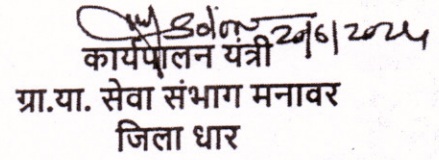 20/6/2024
कार्यपालन यंत्री
ग्रा.या. सेवा संभाग मनावर
जिला धार